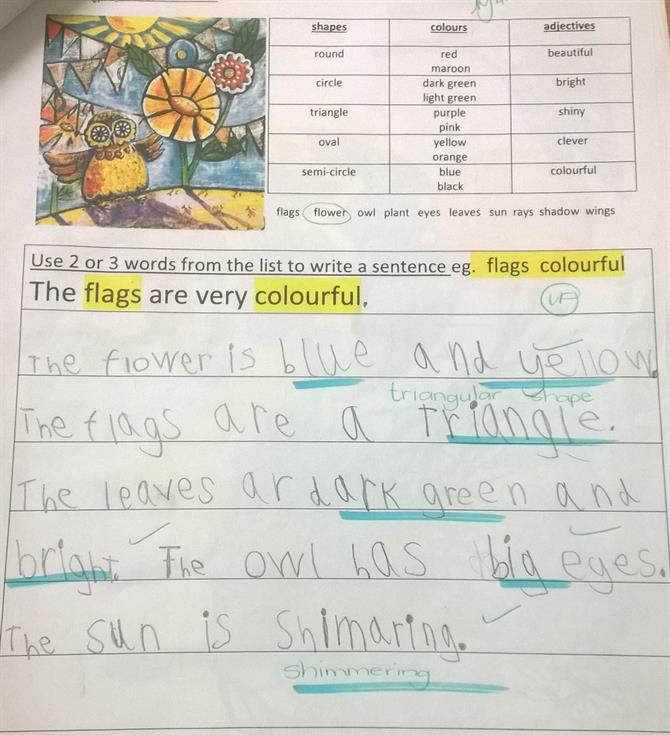 shapes colours adjectives
round red beautiful
maroon
circle dark green bright
light green
triangle purple shiny
pink
oval yellow clever
orange
semi-circle blue colourful
black
flags flower owl plant eyes leaves sun rays shadow wings
Use 2 or 3 words from the list to write a sentence eg. flags colourful
The flags are very colourful.
VF
The flower is blue and yellow.
triangular shape
The flags are a triangle.
The leaves ar dark green and
bright. The owl has big eyes.
The sun is shimaring.
shimmering